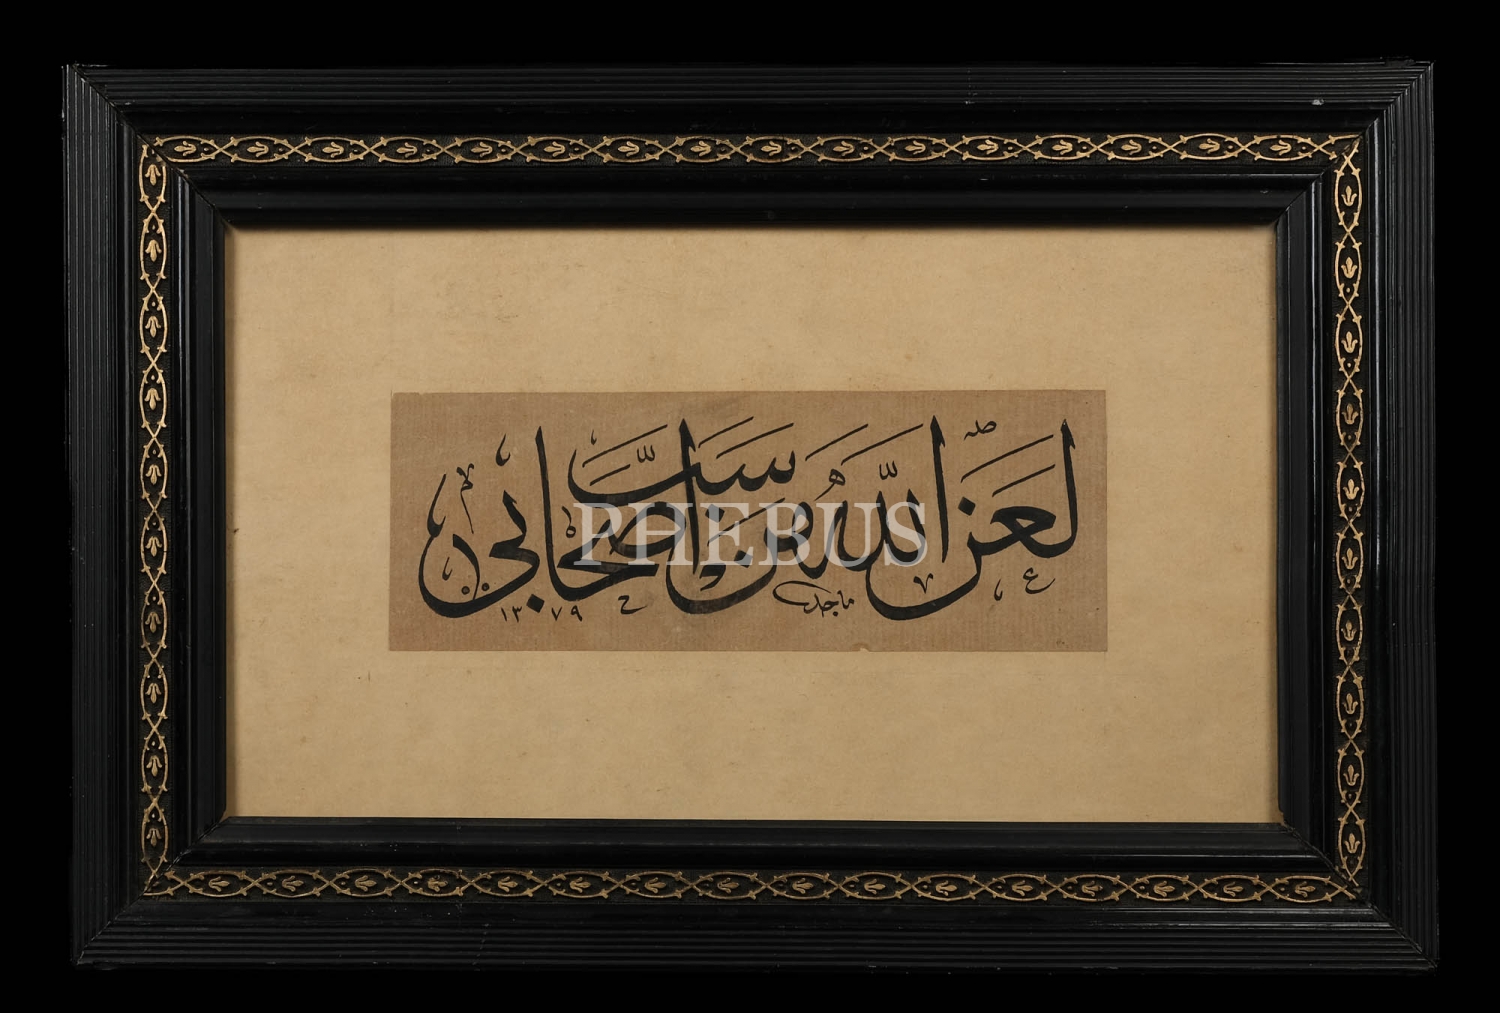 لعن الله من سب اصحابى
ماجد
١٣٧٩
PHEBUS